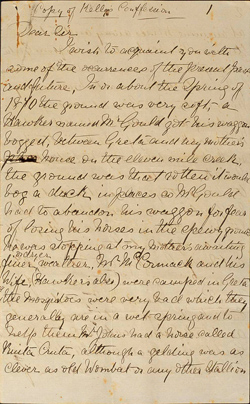 Copy of Kellys Confession 1
Dear Sir
I wish to acquaint you with
some of the occurrences of the present past
and future, In or about the spring of
1870 the ground was very soft, a
Hawker named Mr Gould got his waggon
bogged, between Greta and my mothers
house on the eleven mile creek,
the ground was that rotten it would
bog a duck in places as Mr Gould
had to abandon his waggon for fear
of losing his horses in the spewy ground
He was stopping at my mothers awaiting
finer or dryer weather, Mr McCormack and his
Wife (Hawkers also) were camped in Greta
the mosquitos were very bad which they
generally are in a wet spring and to
help them Mr Johns had a horse called
Ruita Cruta, although a gelding was as
clever as old Wombat or any other Stallion